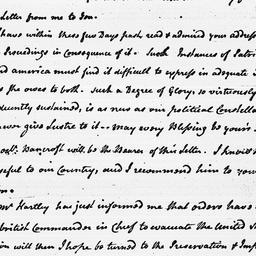 Letter from me to You.
have within these few Days past, read & admired your address
Proceedings in Consequence of it. Such Instances of Patri
nd america must find it difficult to express in adequate
the cross to both. such a Degree of Glory, so virtuously
quently sustained, is as new as our political Constella
ever give Lustre to it -- may every Blessing be yours
Bancroft will be the Bearer of this Letter. I knew
useful to our Country, and I recommend him to you
Mr Hartley has just informed me that orders have
British Commander in Chief to evacuate the United St
ion will then I hope be turned to the Preservation & Imp